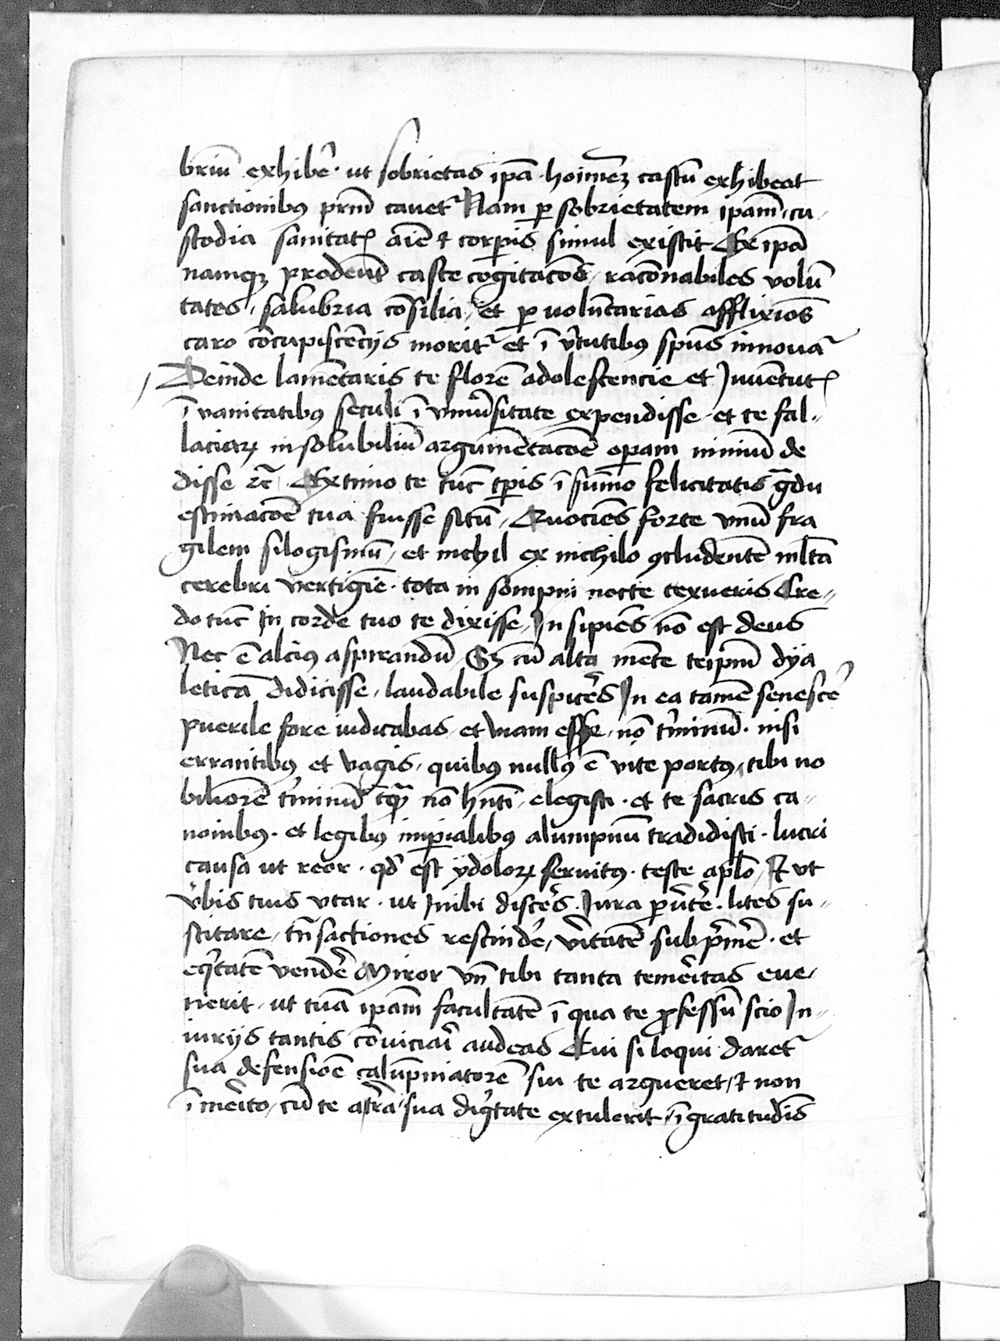 briū exhibē· ut sobrietas ip̄a hoīmēꝫ castū exhibeat
sanctionibꝰ prīn̄ cauet᷑ Nam ꝑ sobrietatem ipam̄ cu
stodia sanitatꝭ aīe ⁊ corꝑis simul existit Ex ipā
namqꝫ prodeūt caste cogitacōēs, racōnabiles volū
tates, salubria cōsilia, et ꝑ volūtarias afflixiōēs
caro cōcupiscēcijs morit᷑ et ī v̓tutibꝰ spūs innouat᷑
Deinde lamētaris te florē adolescencie et Juuētutꝭ
ī vanitatibꝰ seculi ī vniu̓sitate expendisse· et te fal-
laciaꝝ insolubiliū argumētacōē operam nimiū de
disse ⁊c̄ Extimo te tūc tꝑis ī sūmo felicitatis g̓du
estimacōē tua fuisse sitū, Quociēs forte vnū fra
gilem silogismū, et nichil ex nichilo ꝯcludentē ml̄ta
cerebri vertigīe· tota in sompni nocte texueris Cre-
do tūc In corde tuo te dixisse, Insipiēs nō est deus
Nec ē alciꝰ aspirandū Sꝫ cū alta mēte teip̄m dya
leticā didicisse, laudabile suspicer̄s In ea tamē senescē
puerile fore iudicabas, et viam esse, nō t̓minū· nisi
errantibꝰ et vagis, quibꝰ nullꝰ ē vite portꝰ, tibi no
biliorē t̓minū nō hn̄ti elegisti· et te sacris ca-
nonibꝰ· et legibꝰ imꝑialibꝰ alumpnū tradidisti· lucri
causa ut reor· qd̓ est ydoloꝝ seruitꝰ· teste apl̄o, Et ut
v̓bis tuis vtar· ut inibi discer̄s· Jura ꝑu̓tē̓· lites su-
scitare, trā̄sactiones rescindē, v̓itatē sub p̓mē̓· et
eq̓tatē vendē̓ Miror vn̄ tibi tanta tem̓itas eue-
nerit· ut tuā ipam̄ facultatē ī qua te ꝓfessū scio In-
iurijs tantis cōuiciai̓ audeas Cui si loqui daret᷑
sua defensiōē calūpniatorē sui te argueret, ⁊ non
īm̓ito, cū te sua dig̓tate extulerit, īgratitudīs